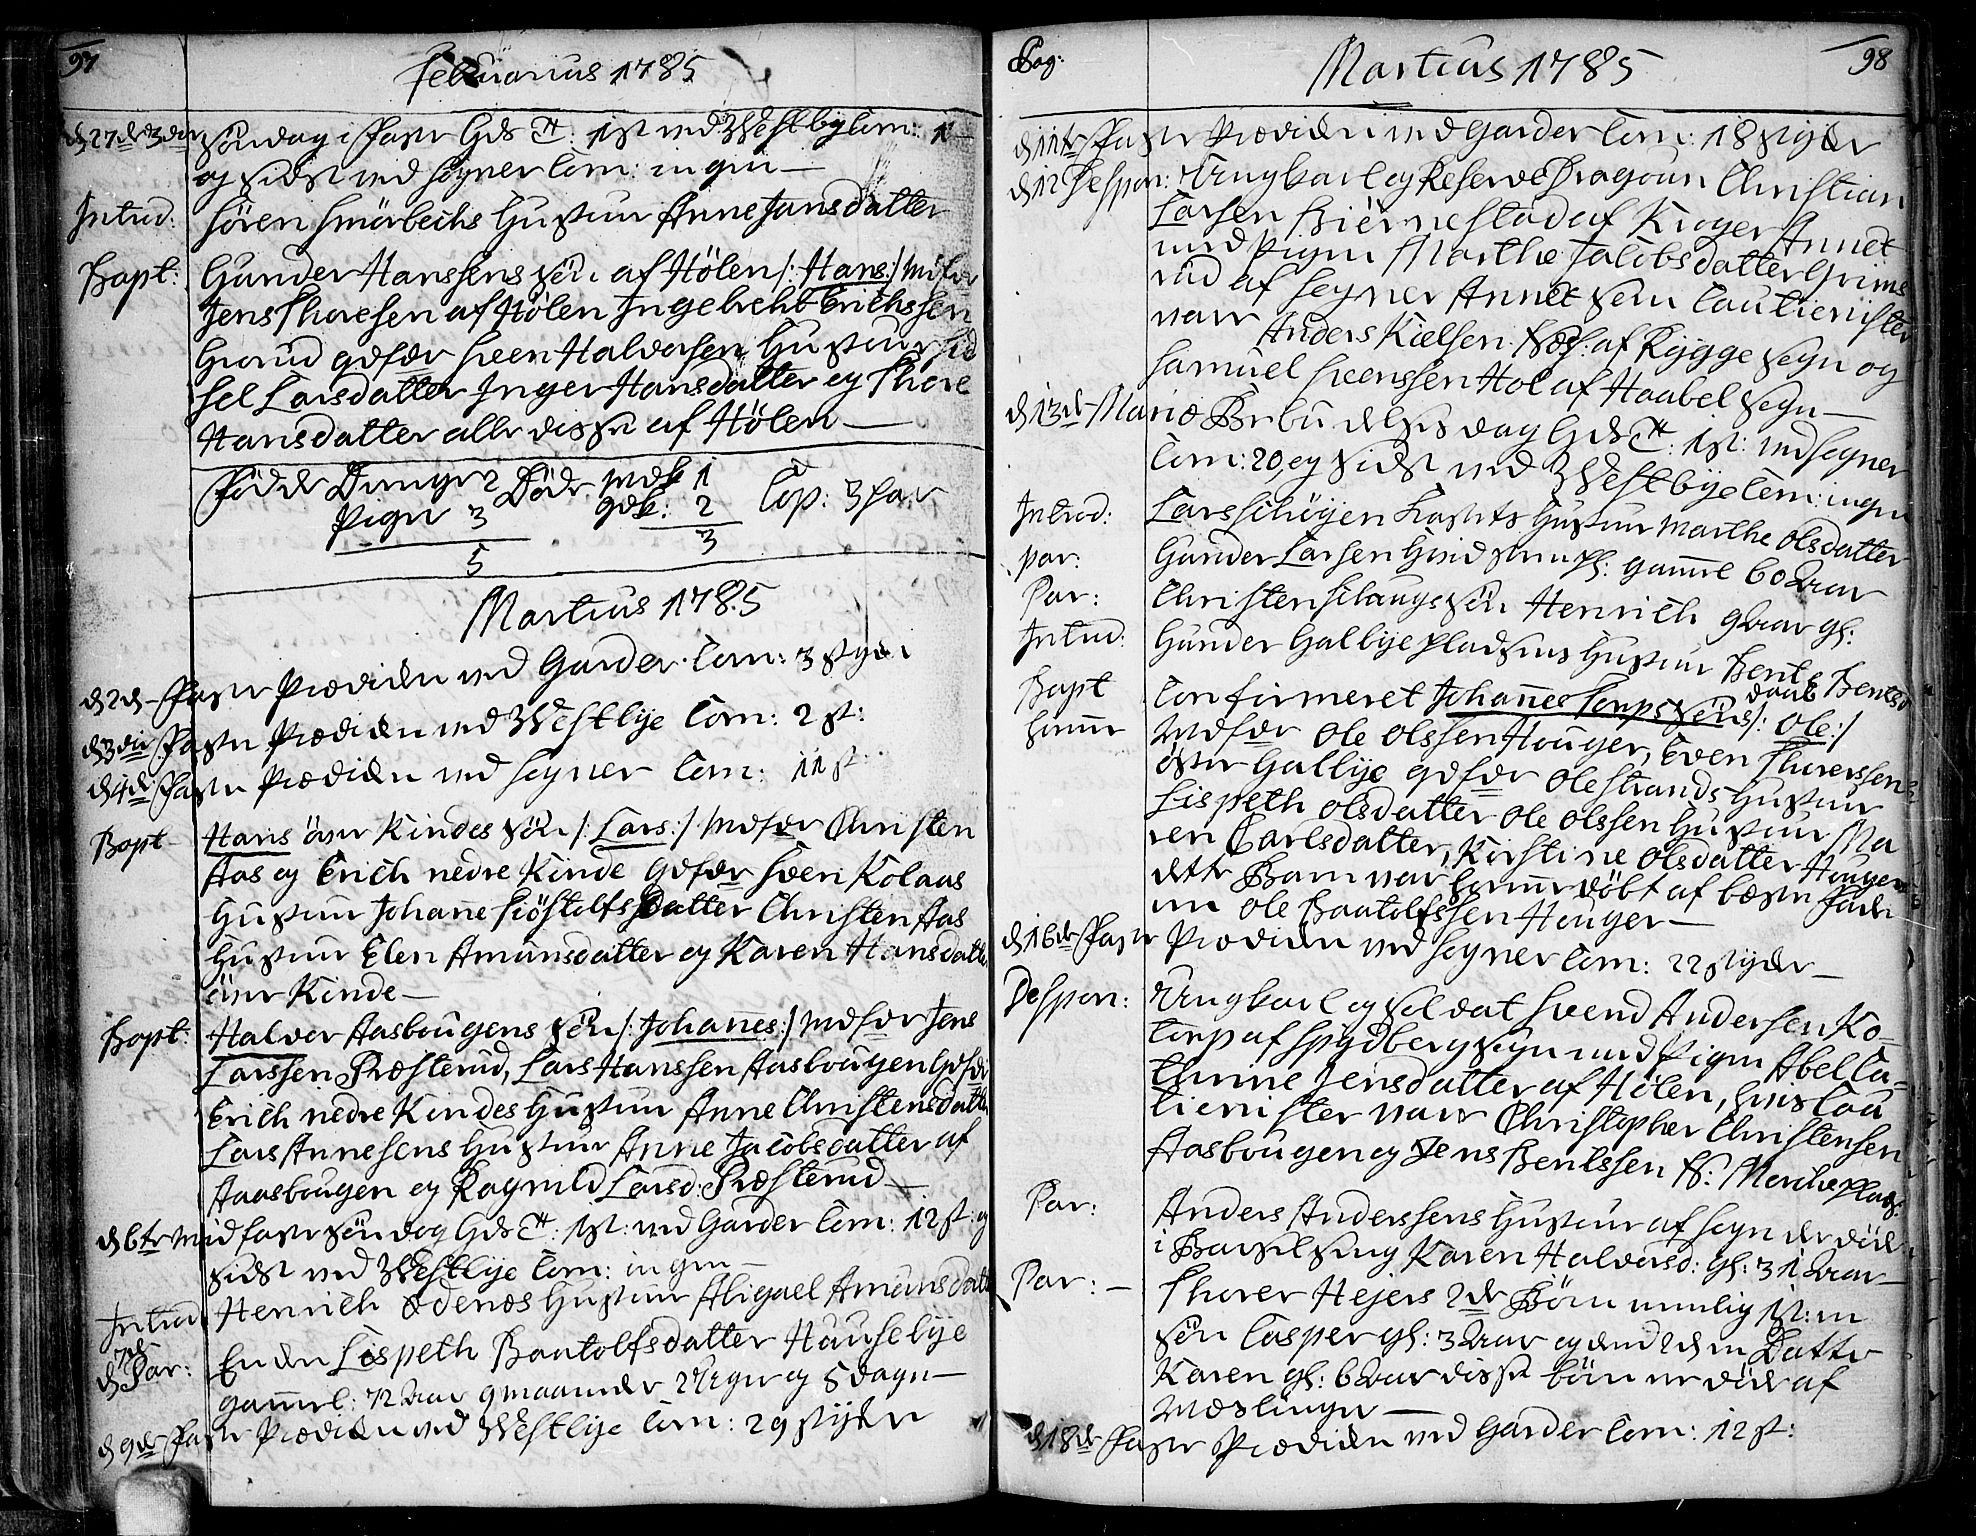 97
Februarius 1785
d 27de 3die Söndag i Faste Gds T: 1st ved Westby Com: 1
og sidst ved Sogner Com: ingen
Introd: Sören Smörbechs Hustrue Anne Jansdatter
Bapt: Gunder Hanssens Sön af Hölen /: Hans :/ Mdfdr
Jens Thoresen af Hölen Ingebreht Erichssen
gdfdr Sven Halvorsen Hustrue
sel Larsdatter Inger Hansdatter og Thore
Hansdatter alle disse af Hölen
födde Drenge 2 Döde mdk 1 Cop: 3 Par
Piger 3 qdk: 2
5 3
Martius 1785
d 2d Faste Prædiken ved Garder Com: 3 styker
d 3die Faste Prædiken ved Westbye Com: 2 st:
d 4de Faste Prædiken ved Sogner Com: 11 st:
Bapt Hans öwr Kindes Sön /: Lars :/ Mdfdr Christen
Aas og Erich nedre Kinde Qdfdr Sven Kolaas
Hustrue Johanne Siöstolfsdatter Christen Aas
Hustrue Elen Amunsdatter og Karen Hansdatter
öwr Kinde
Bapt: Halvor Aasbougens Sön /: Johannes :/ Mdfdr Jens
Larssen Præsterud, Lars Hanssen Aasbougen Qdfdr
Erich nedre Kindes Hustrue Anne Christensdatter
Lars Annesens Hustrue Anne Jacobsdatter af
Aaasbougen og Ragnild Larsd: Præsterud
d 6te Midfaste Söndag Gds T: 1st: ved Garder Com: 12 st: og
sidst ved Westbye Com: ingen
Introd Henrich Ödenæs Hustrue Abigael Amunsdatter
d 7de Par: Enken Lispeth Bantolfsdatter Hauselbye
gammel: 72 Aar 9 maaneder 2 Uger og 5 dage
d 9de Faste Prædiken ved Westbye Com: 29 styker
Pag:
Martius 1785
98
d 11te Faste Prædiken ved Garder Com: 18 styker
d 12 Despon: Ungkarl og Reserve Dragoun Christian
Larsen Biörnestad af Kroger Annex
med Pigen Marthe Jacobsdatter Grims
rud af Sogner Annex som Cautionister
var Anders Kielsen af Rygge Sogn og
Samuel Svenssen Hol af Haabel Sogn
d 13de Mariæ Bebudelses dag Gds T: 1st: ved Sogner
Com: 20, og sidst ved Westbye Com: ingen
Introd: Lars Schöyen Hustrue Marthe Olsdatter
Par: Gunder Larsen gammel 60 Aar
Par: Christen Schaugs Sön Henrich 9 Aar gl:
Introd: Gunder Galbye pladsens Hustrue Bente Bentsd
Bapt Confirmeret Johannes Torps Söns daab /: Ole :/
hjemme Mdfdr Ole Olssen Houger, Even Thorerssen
öster Galbye qdfdr Ole Strands Hustrue
Lispeth Olsdatter Ole Olssen Hustrue Ma
ren Carlsdatter, Kirstine Olsdatter Houger
dette Barn var hjemme döbt af
Ole Baatolfssen Houger
d 16de Faste Prædiken ved Sogner Com: 22 styker
Despon: Ungkarl og Soldat Svend Andersen Ko-
torp af Spydberg Sogn med Pigen Abel Ca-
thrine Jensdatter af Hölen, hvis Cau
tionister var Christopher Christensen
Aasbougen og Jens Bentssen
Par: Anders Anderssens Hustrue af Sogn der döde
i Barselseng Karen Halvorsd: gl: 31 Aar
Par: Thorer Hejers 2de Börn nemlig 1st: en
Sön Casper gl: 3 Aar og den 2den Datter
Karen gl: 6 Aar disse börn er döde af
Mæslinger
d 18de Faste Prædiken ved Garder Com: 12 st: